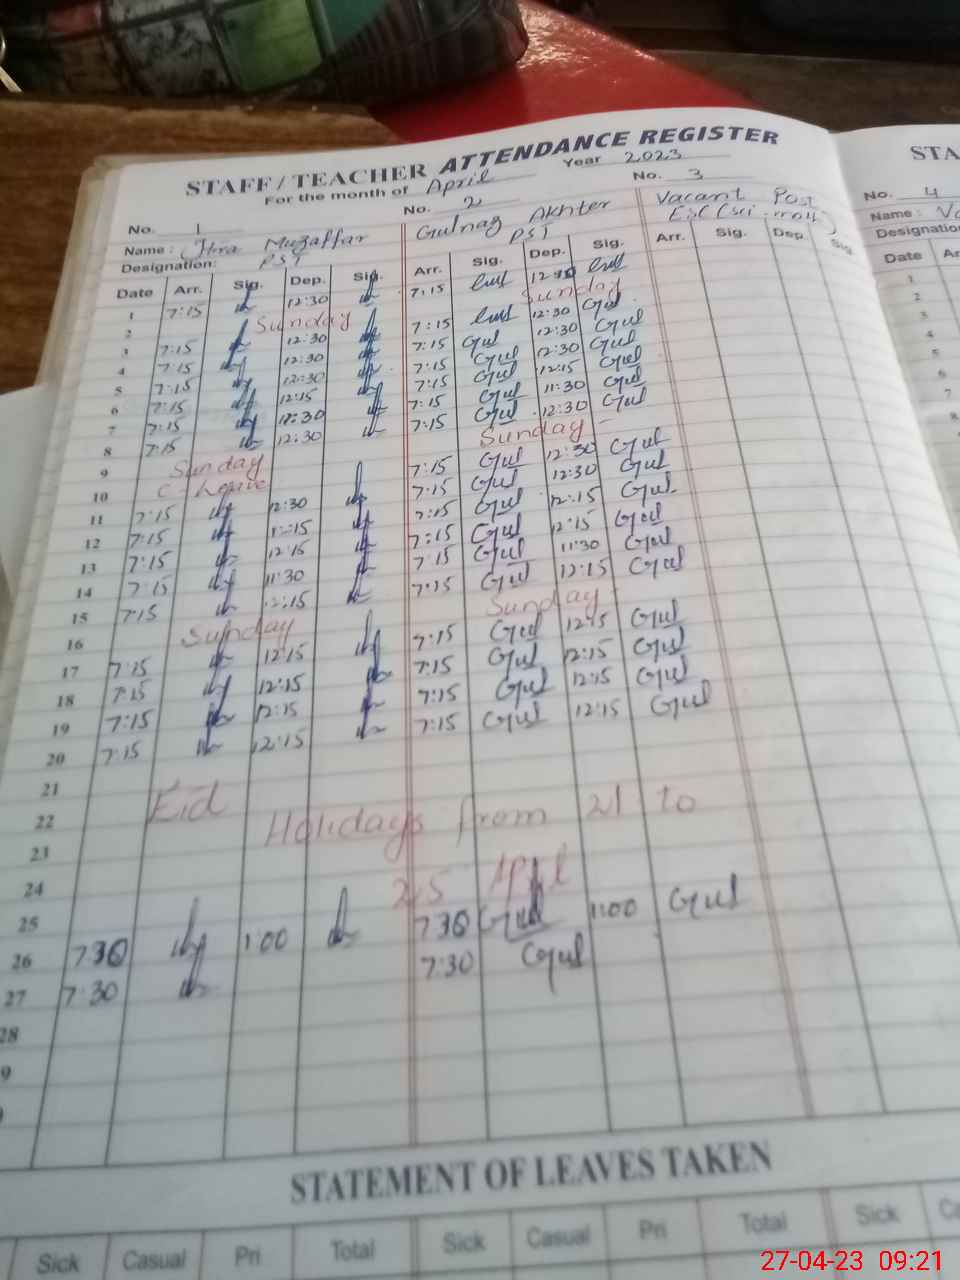 STAFF / TEACHER ATTENDANCE REGISTER
STA
For the month of April Year 2023
No. 1 No. 2 No. 3 No. 4
Name : Muzaffar Gulnaz Akhter Vacant Post Name : Va
Designation: PST PST Designation
Date Arr. Sig. Dep. Sig. Arr. Sig. Dep. Sig. Arr. Sig. Dep. Sig. Date Ar
1 7:15 12:30 7:15 12:30
2 Sunday Sunday
3 7:15 12:30 7:15 12:30 Gul
4 7:15 12:30 7:15 Gul 12:30 Gul
5 7:15 12:30 7:15 Gul 12:30 Gul
6 7:15 12:15 7:15 Gul 12:15 Gul
7 7:15 7:15 Gul 11:30 Gul
8 7:15 12:30 7:15 Gul 12:30 Gul
9 Sunday Sunday
10 C-Leave 7:15 Gul 12:30 Gul
11 7:15 12:30 7:15 Gul 12:30 Gul
12 7:15 12:15 7:15 Gul 12:15 Gul
13 7:15 12:15 7:15 Gul 12:15 Gul
14 7:15 11:30 7:15 Gul 11:30 Gul
15 7:15 12:15 7:15 Gul 12:15 Gul
16 Sunday Sunday
17 7:15 12:15 7:15 Gul 12:15 Gul
18 7:15 12:15 7:15 Gul 12:15 Gul
19 7:15 12:15 7:15 Gul 12:15 Gul
20 7:15 12:15 7:15 Gul 12:15 Gul
21
22 Eid Holidays from 21 to
23
24 25 April
25
26 7:30 1:00 7:30 Gul 1:00 Gul
27 7:30 7:30 Gul
28
9
STATEMENT OF LEAVES TAKEN
Sick Casual Pri Total Sick Casual Pri Total Sick Ca
27-04-23 09:21